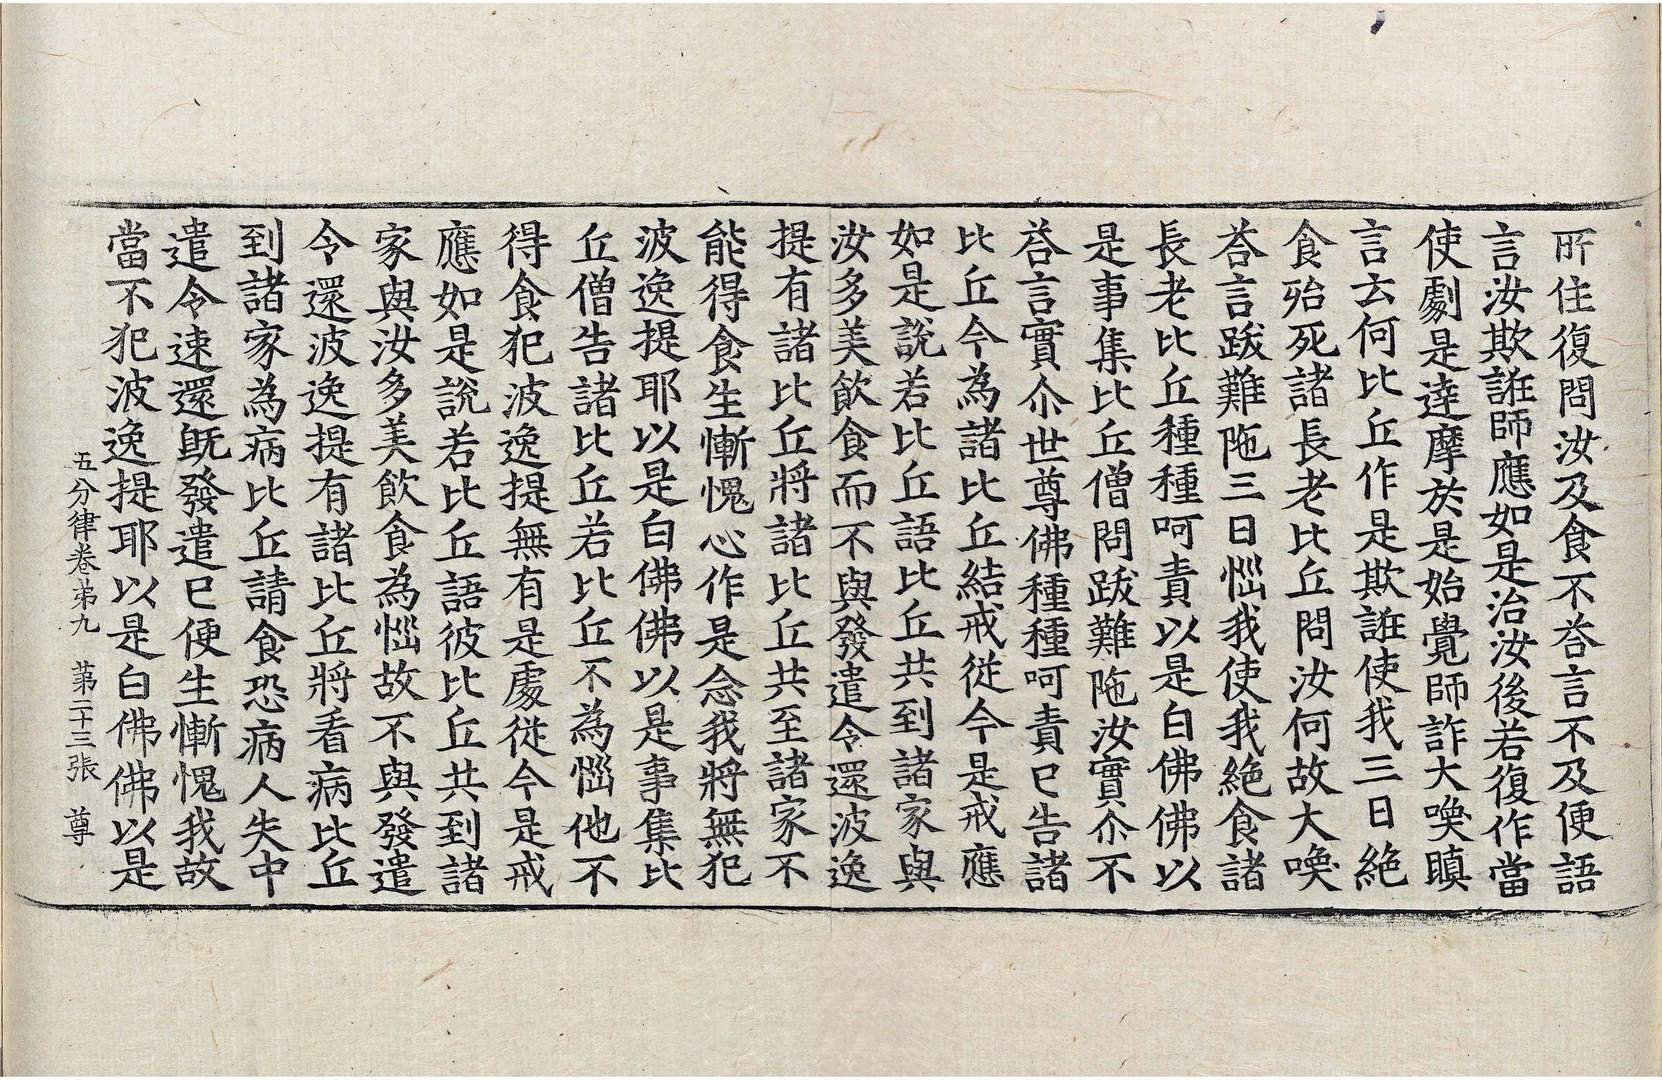 所住復問汝及食不荅言不及便語
言汝欺誑師應如是治汝後若復作當
使劇是達摩於是始覺師詐大喚瞋
言云何比丘作是欺誑使我三日絶
食殆死諸長老比丘問汝何故大喚
荅言跋難陁三日惱我使我絶食諸
長老比丘種種呵責以是白佛佛以
是事集比丘僧問跋難陁汝實尒不
荅言實尒世尊佛種種呵責已告諸
比丘今為諸比丘結戒從今是戒應
如是說若比丘語比丘共到諸家與
汝多美飲食而不與發遣令還波逸
提有諸比丘將諸比丘共至諸家不
能得食生慚愧心作是念我將無犯
波逸提耶以是白佛佛以是事集比
丘僧告諸比丘若比丘不為惱他不
得食犯波逸提無有是處從今是戒
應如是說若比丘語彼比丘共到諸
家與汝多美飲食為惱故不與發遣
令還波逸提有諸比丘將看病比丘
到諸家為病比丘請食恐病人失中
遣令速還旣發遣已便生慚愧我故
當不犯波逸提耶以是白佛佛以是
五分律卷苐九　苐二十三張　尊